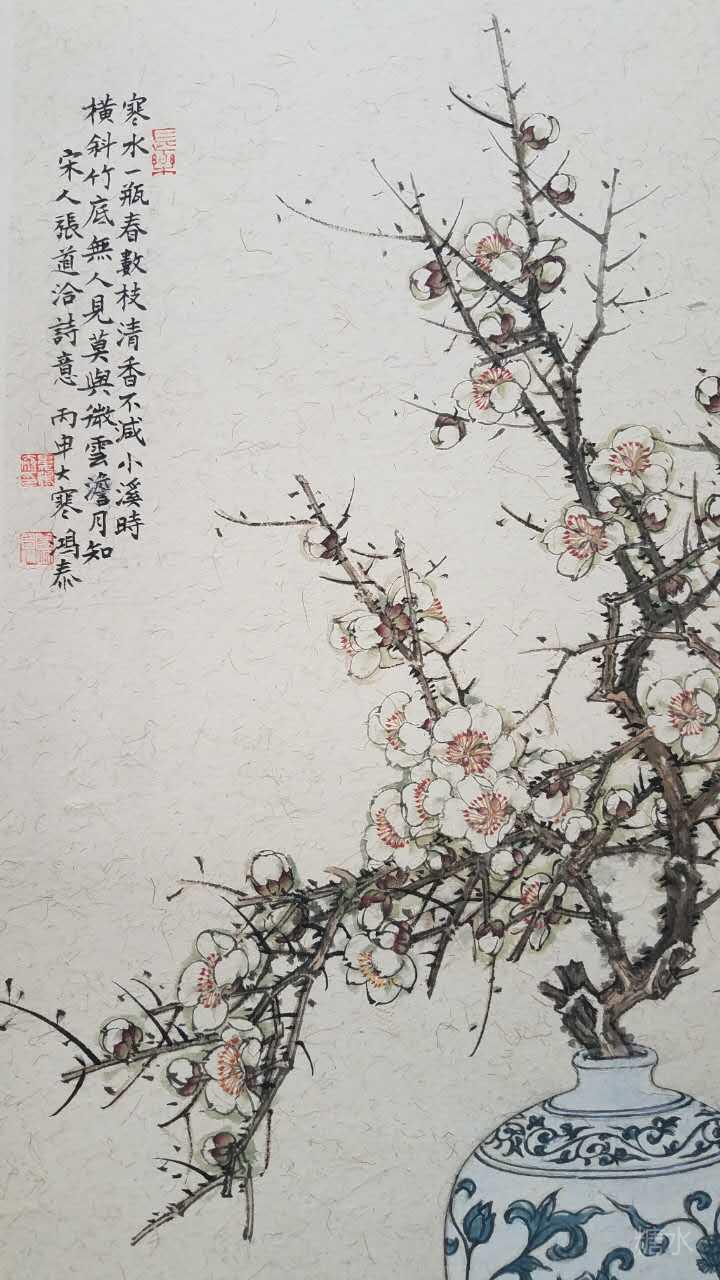 寒水一瓶春數枝清香不减小溪時
橫斜竹底無人見莫與微雲澹月知
宋人張道洽詩意 丙申大寒 鴻泰
長樂
糖水